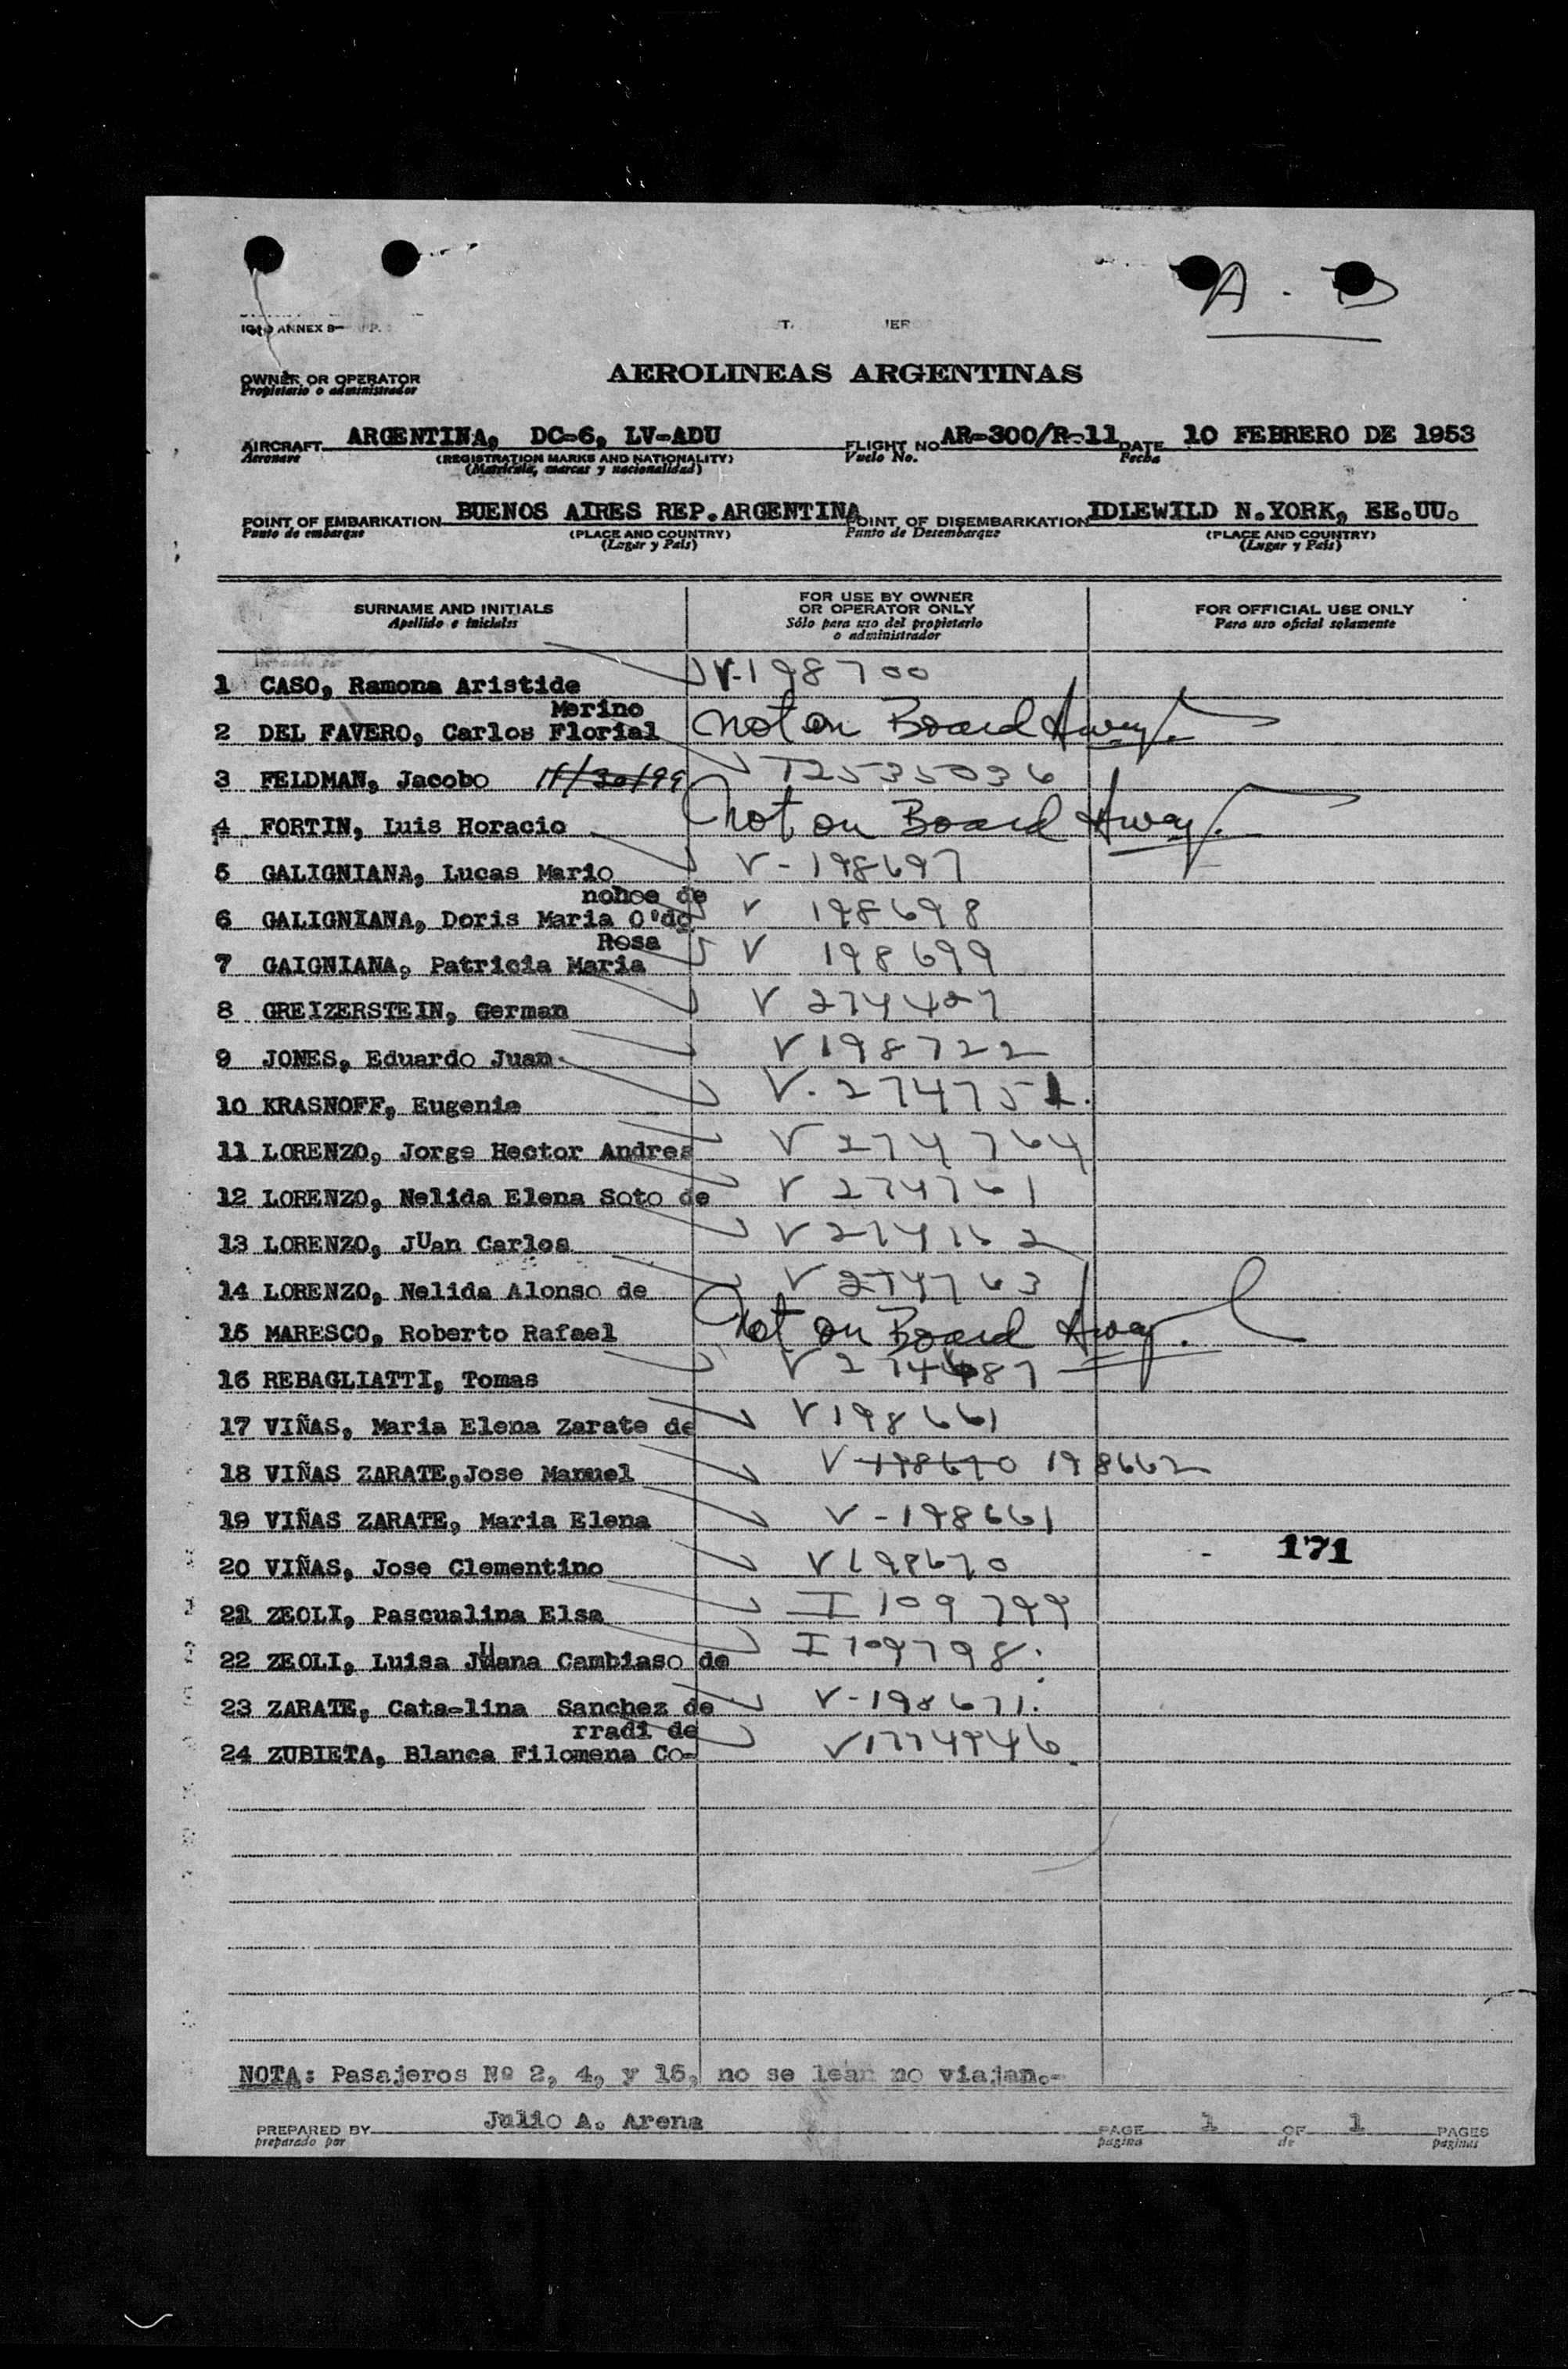 A. B
ICAO ANNEX 9—
OWNER OR OPERATOR
Propietario o administrador
AEROLINEAS ARGENTINAS
AIRCRAFT ARGENTINA, DC-6, LV-ADU FLIGHT NO AR-300/R-11 DATE 10 FEBRERO DE 1953
Aeronave (REGISTRATION MARKS AND NATIONALITY) Vuelo No. Fecha
(Matrícula, marcas y nacionalidad)
POINT OF EMBARKATION BUENOS AIRES REP.ARGENTINA POINT OF DISEMBARKATION IDLEWILD N.YORK, EE.UU.
Punto de embarque (PLACE AND COUNTRY) Punto de Desembarque (PLACE AND COUNTRY)
(Lugar y País) (Lugar y País)
SURNAME AND INITIALS FOR USE BY OWNER OR OPERATOR ONLY FOR OFFICIAL USE ONLY
Apellido e iniciales Sólo para uso del propietario o administrador Para uso oficial solamente
1 CASO, Ramona Aristide V-198700
Merino
2 DEL FAVERO, Carlos Florial Not on Board
3 FELDMAN, Jacobo 11/30/99 T2535036
4 FORTIN, Luis Horacio Not on Board
5 GALIGNIANA, Lucas Mario V-198697
nohoe de
6 GALIGNIANA, Doris Maria O'do V 198698
Rosa
7 GAIGNIANA, Patricia Maria V 198699
8 GREIZERSTEIN, German V 274427
9 JONES, Eduardo Juan V198722
10 KRASNOFF, Eugenie V.274751.
11 LORENZO, Jorge Hector Andres V 274764
12 LORENZO, Nelida Elena Soto de V 274761
13 LORENZO, JUan Carlos V 274762
14 LORENZO, Nelida Alonso de V 274763
15 MARESCO, Roberto Rafael Not on Board
16 REBAGLIATTI, Tomas
17 VIÑAS, Maria Elena Zarate de V198661
18 VIÑAS ZARATE,Jose Manuel V 198670 198662
19 VIÑAS ZARATE, Maria Elena V-198661
20 VIÑAS, Jose Clementino V198670
171
21 ZEOLI, Pascualina Elsa I 109799
22 ZEOLI, Luisa JUana Cambiaso de I 109798.
23 ZARATE, Cata-lina Sanchez de V-198671.
rradi de
24 ZUBIETA, Blanca Filomena Co- V1774946
NOTA: Pasajeros Nº 2, 4, y 15, no se lean no viajan.-
PREPARED BY Julio A. Arena PAGE 1 OF 1 PAGES
preparado por pagina de paginas